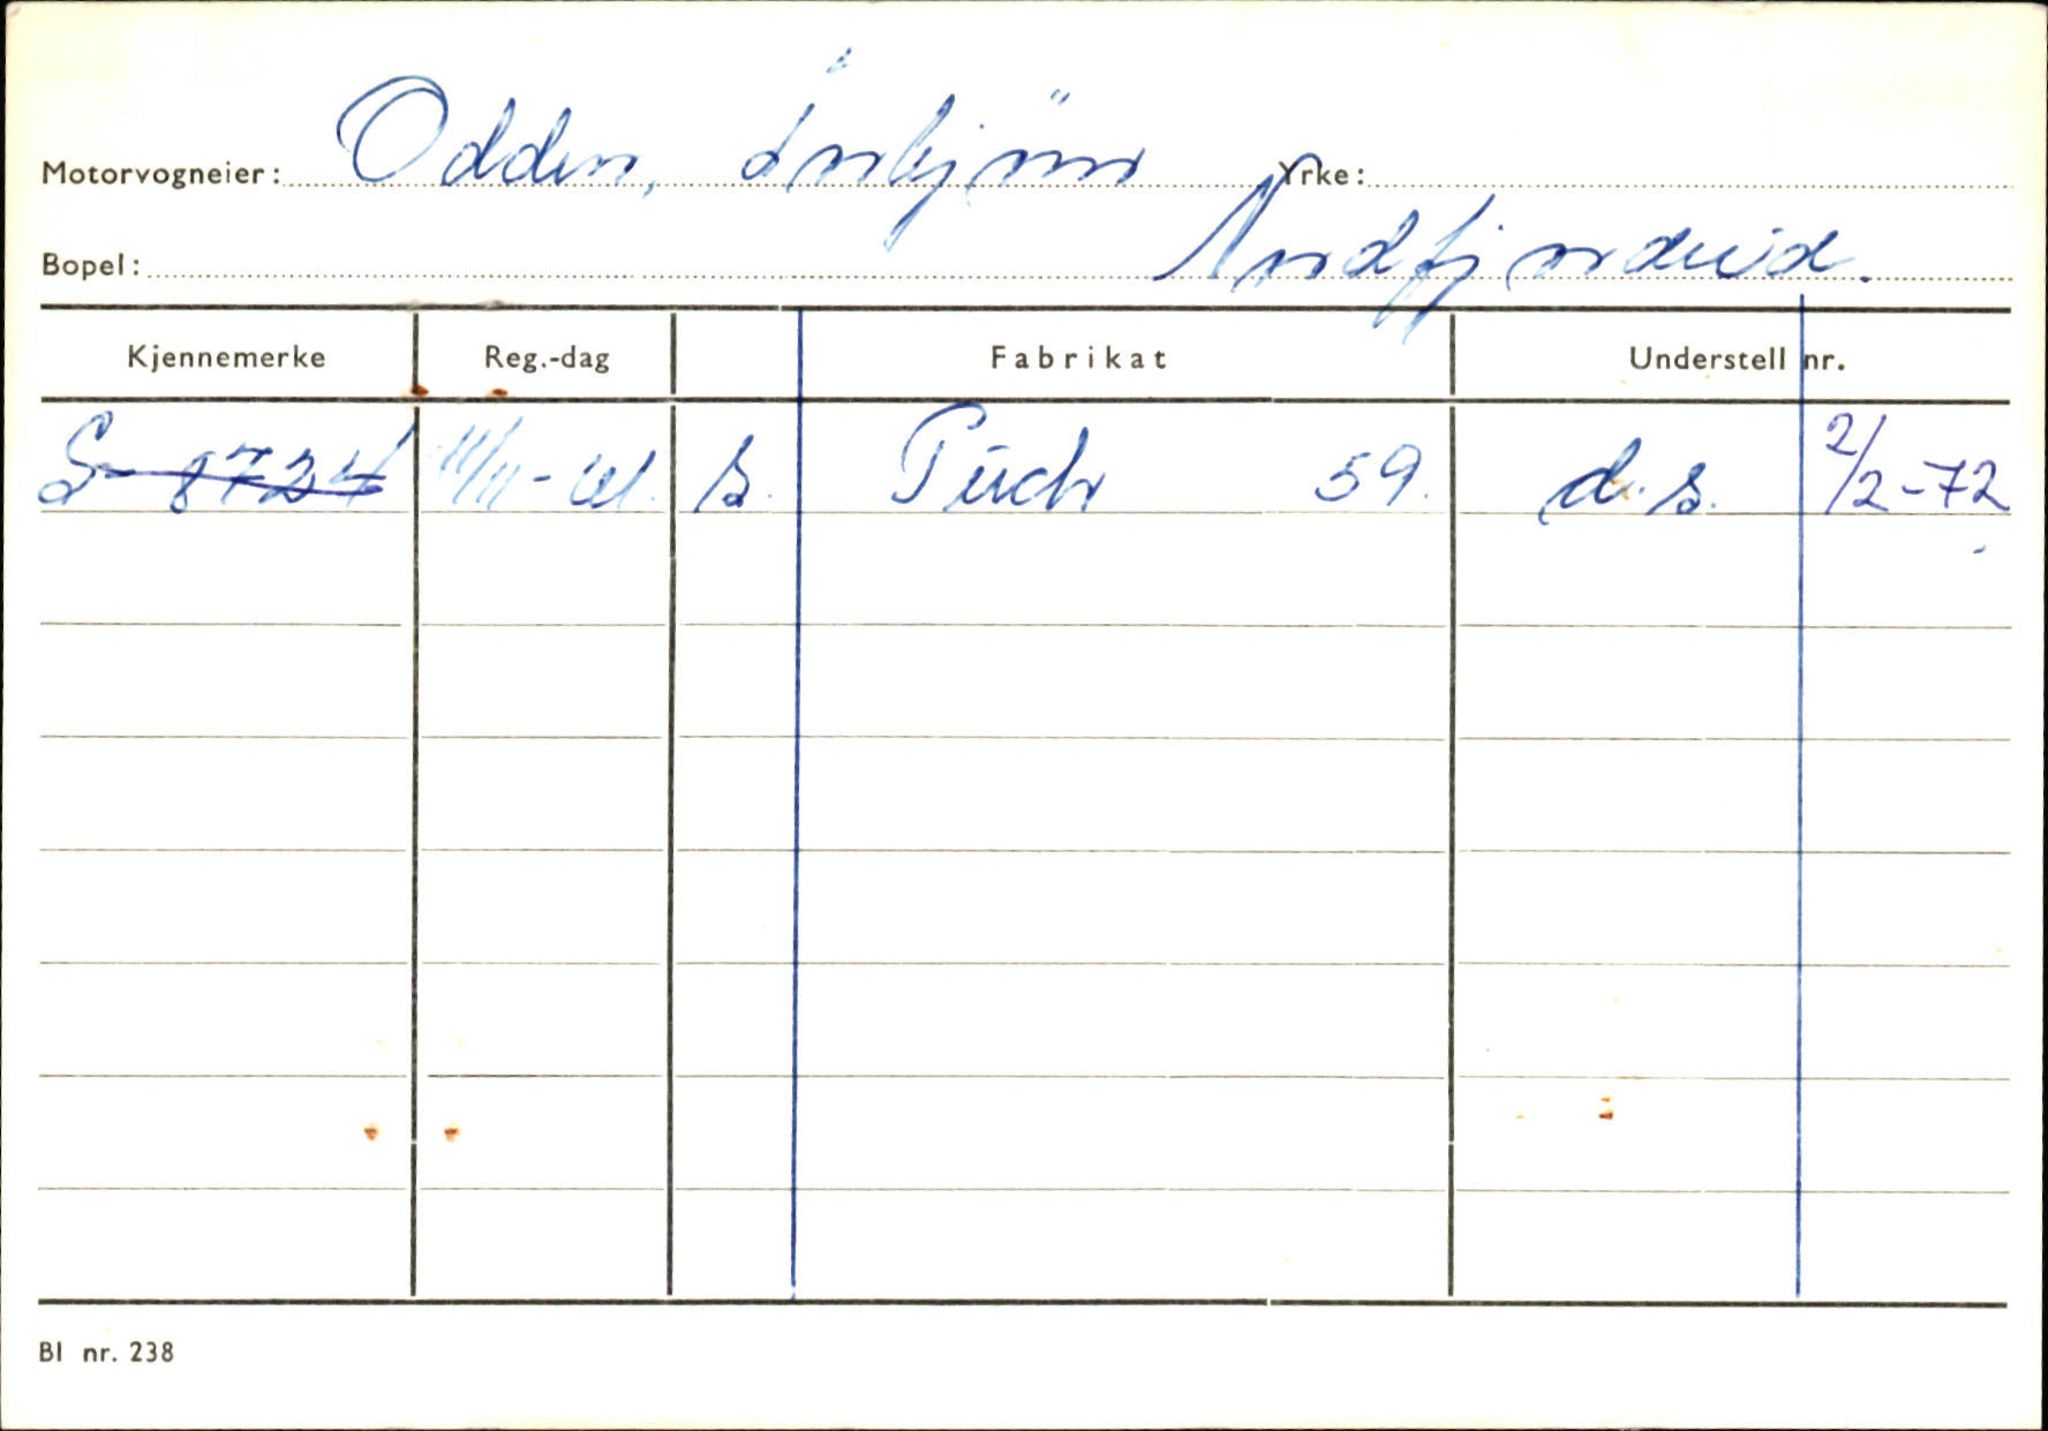 Motorvogneier: Odden, Yrke:
Bopel: Nordfjordeid.
Kjennemerke Reg.-dag Fabrikat Understell nr.
S-8724 11/11-61. s. Puch 59. d.s. 2/2-72
Bl nr. 238